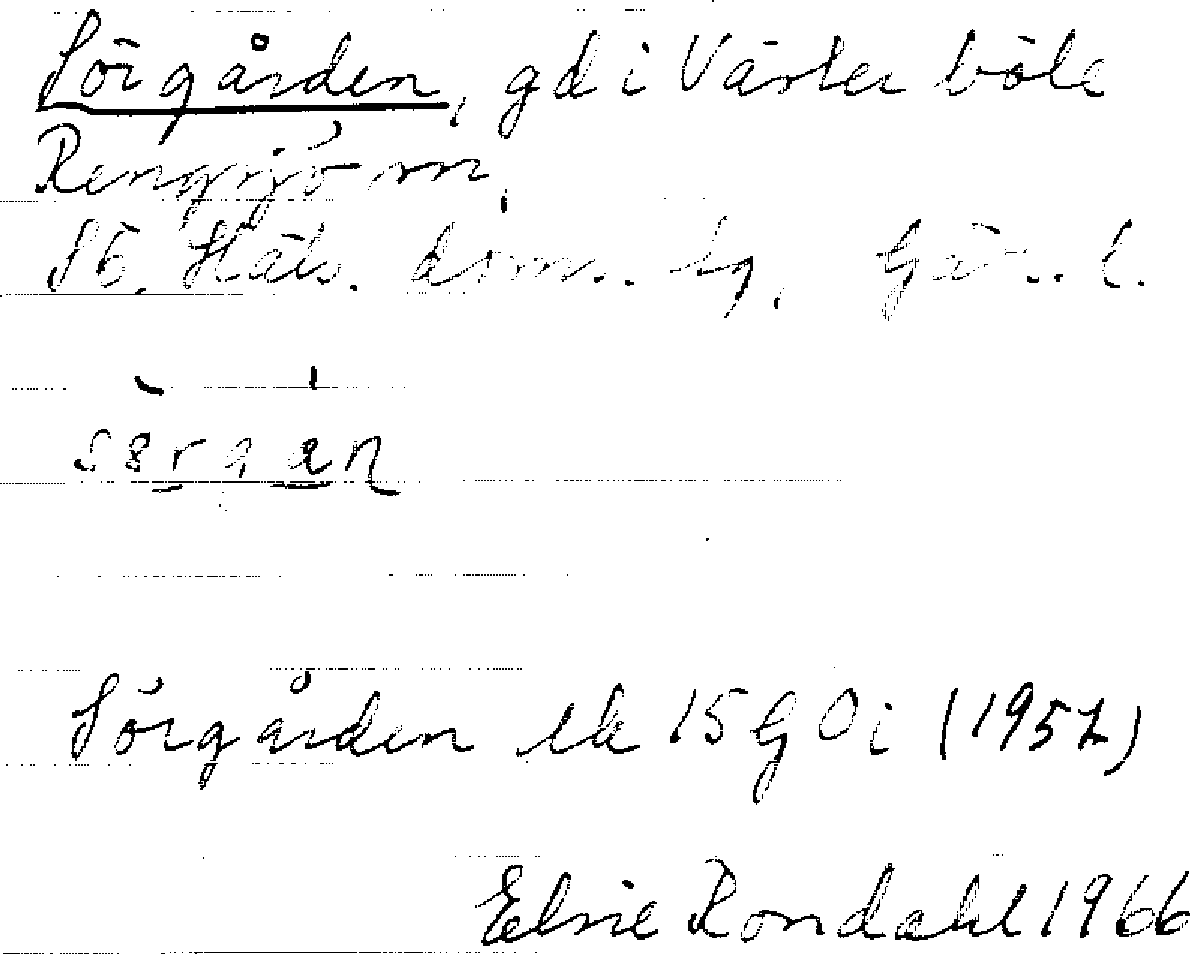 Sörgården, gd i Västerböle
Rengsjö sn,
Sö. Häls. doms. tg, Gävl. l.
Sörgården ek 15 G 0 i (1957)
Elsie Rondahl 1966